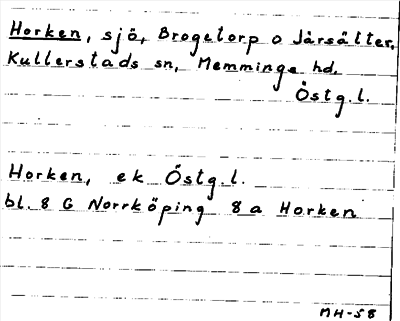 Horken, sjö, Brogetorp o Jårsätter,
Kullerstads sn, Memminge hd.
Östg.l.
Horken, ek Östg.l.
bl. 8 G Norrköping 8 a Horken
MH-58